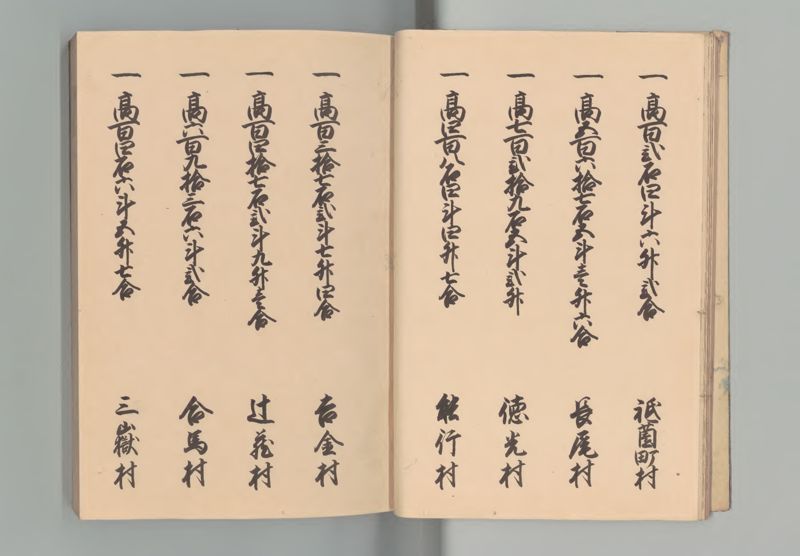 一 高百弐石四斗六升弐合 祇園町村
一 高五百六拾七石五斗壱升六合 長尾村
一 高七百弐拾九石五斗弐升 徳光村
一 高四百八石四斗四升七合 能行村
一 高百三拾七石弐斗七升四合 吉金村
一 高百四拾七石弐斗九升壱合 辻蔵村
一 高六百九拾三石六斗弐合 合馬村
一 高百四石六斗五升七合 三嶽村